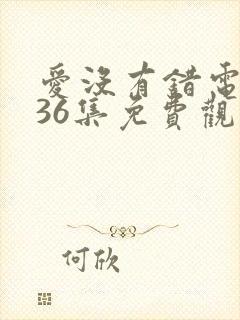 愛沒有錯電
36集免費觀
何欣